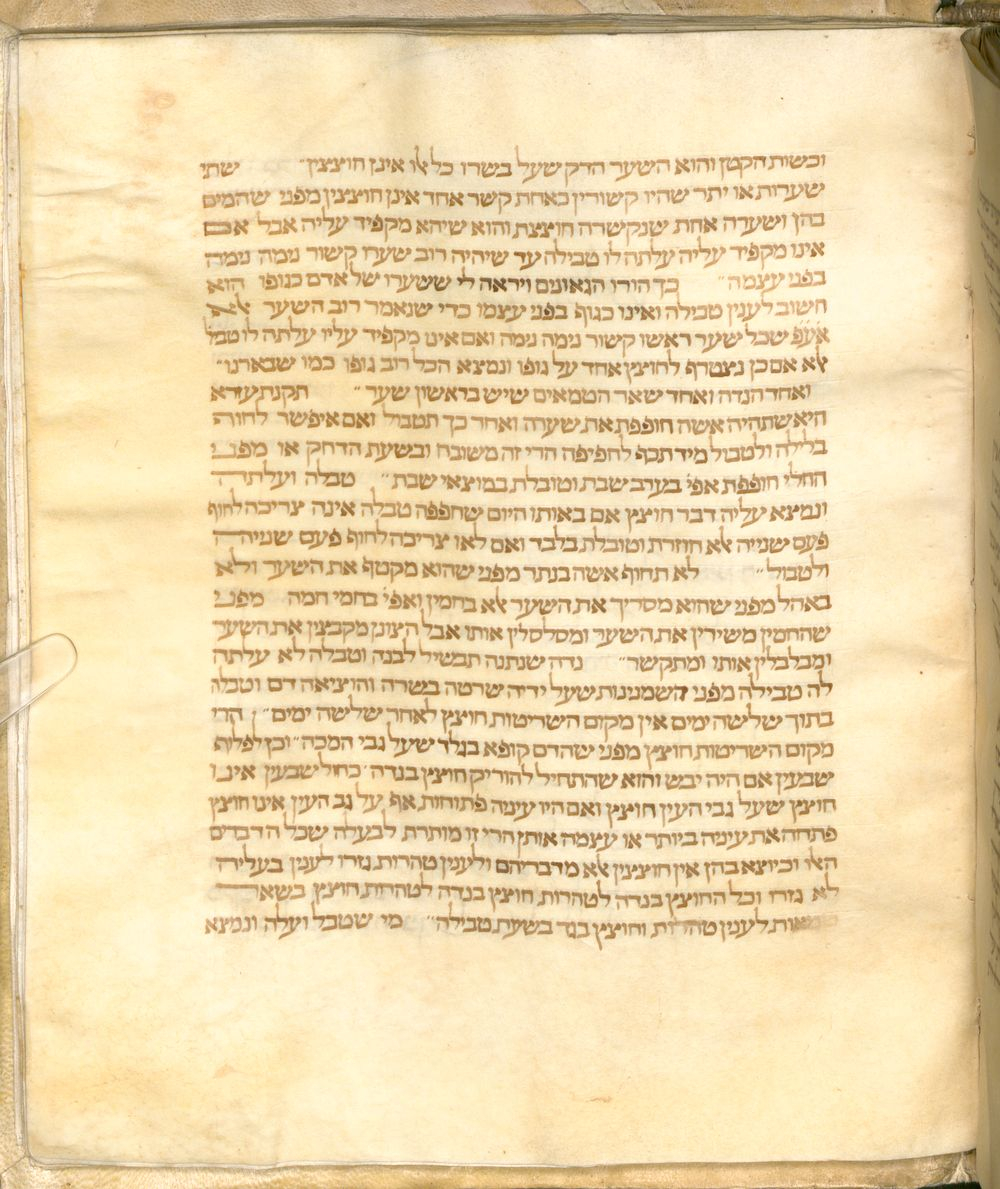 וכשות הקטן והוא השער הדק שעל בשרו כל אלו אינן חוצצין״ שתי
שערות או יתר שהיו קשורין כאחת קשר אחד אינן חוצצין מפני שהמים
בהן ושערה אחת שנקשרה חוצצת והוא שיהא מקפיד עליה אבל אם
אינו מקפיד עליה עלתה לו טבילה עד שיהיה רוב שערו קשור נימה נימה
בפני עצמה״ כך הורו הגאונים ויראה לי ששערו של אדם כגופו הוא
חשוב לענין טבילה ואינו כגוף בפני עצמו כדי שנאמר רוב השער אלא
אע״פ שכל שער ראשו קשור נימה נימה ואם אינו מקפיד עליו עלתה לו טביל
אלא אם כן נצטרף לחוצץ אחד על גופו ונמצא הכל רוב גופו כמו שבארנו״
ואחד הנדה ואחד שאר הטמאים שיש בראשון שער״ תקנת עזרא
היא שתהיה אשה חופפת את שערה ואחר כך תטבול ואם איפשר לחוף
בלילה ולטבול מיד תכף לחפיפה הרי זה משובח ובשעת הדחק או מפני
החלי חופפת אפי׳ בערב שבת וטובלת במוצאי שבת״ טבלה ועלתה
ונמצא עליה דבר חוצץ אם באותו היום שחפפה טבלה אינה צריכה לחוף
פעם שנייה אלא חוזרת וטובלת בלבד ואם לאו צריכה לחוף פעם שנייה
ולטבול״ לא תחוף אשה בנתר מפני שהוא מקטף את השער ולא
באהל מפני שהוא מסריך את השער אלא בחמין ואפי׳ בחמי חמה מפני
שהחמין משירין את השער ומסלסלין אותו אבל הצונן מקבצין את השער
ומבלבלין אותו ומתקשר״ נדה שנתנה תבשיל לבנה וטבלה לא עלתה
לה טבילה מפני השמנינות שעל ידיה שרטה בשרה והוציאה דם וטבלה
בתוך שלישה ימים אין מקום השריטות חוצץ לאחר שלישה ימים״ הרי
מקום השריטות חוצץ מפני שהדם קופא בגלד שעל גבי המכה״ וכן לפלוף
שבעין אם היה יבש והוא שהתחיל להוריק חוצץ בנדה׳ כחול שבעין אינו
חוצץ שעל גבי העין חוצץ ואם היו עיניה פתוחות אף על גב העין אינו חוצץ
פתחה את עיניה ביותר או עצמה אותן הרי זו מותרת לבעלה שכל הדברים
האלו וכיוצא בהן אין חוצצין אלא מדבריהם ולענין טהרות גזרו לענין בעילה
לא גזרו וכל החוצץ בנדה לטהרות חוצץ בנדה לטהרות חוצץ בשאר
טמאות לענין טהרות וחוצץ בגר בשעת טבילה״ מי שטבל ועלה ונמצא